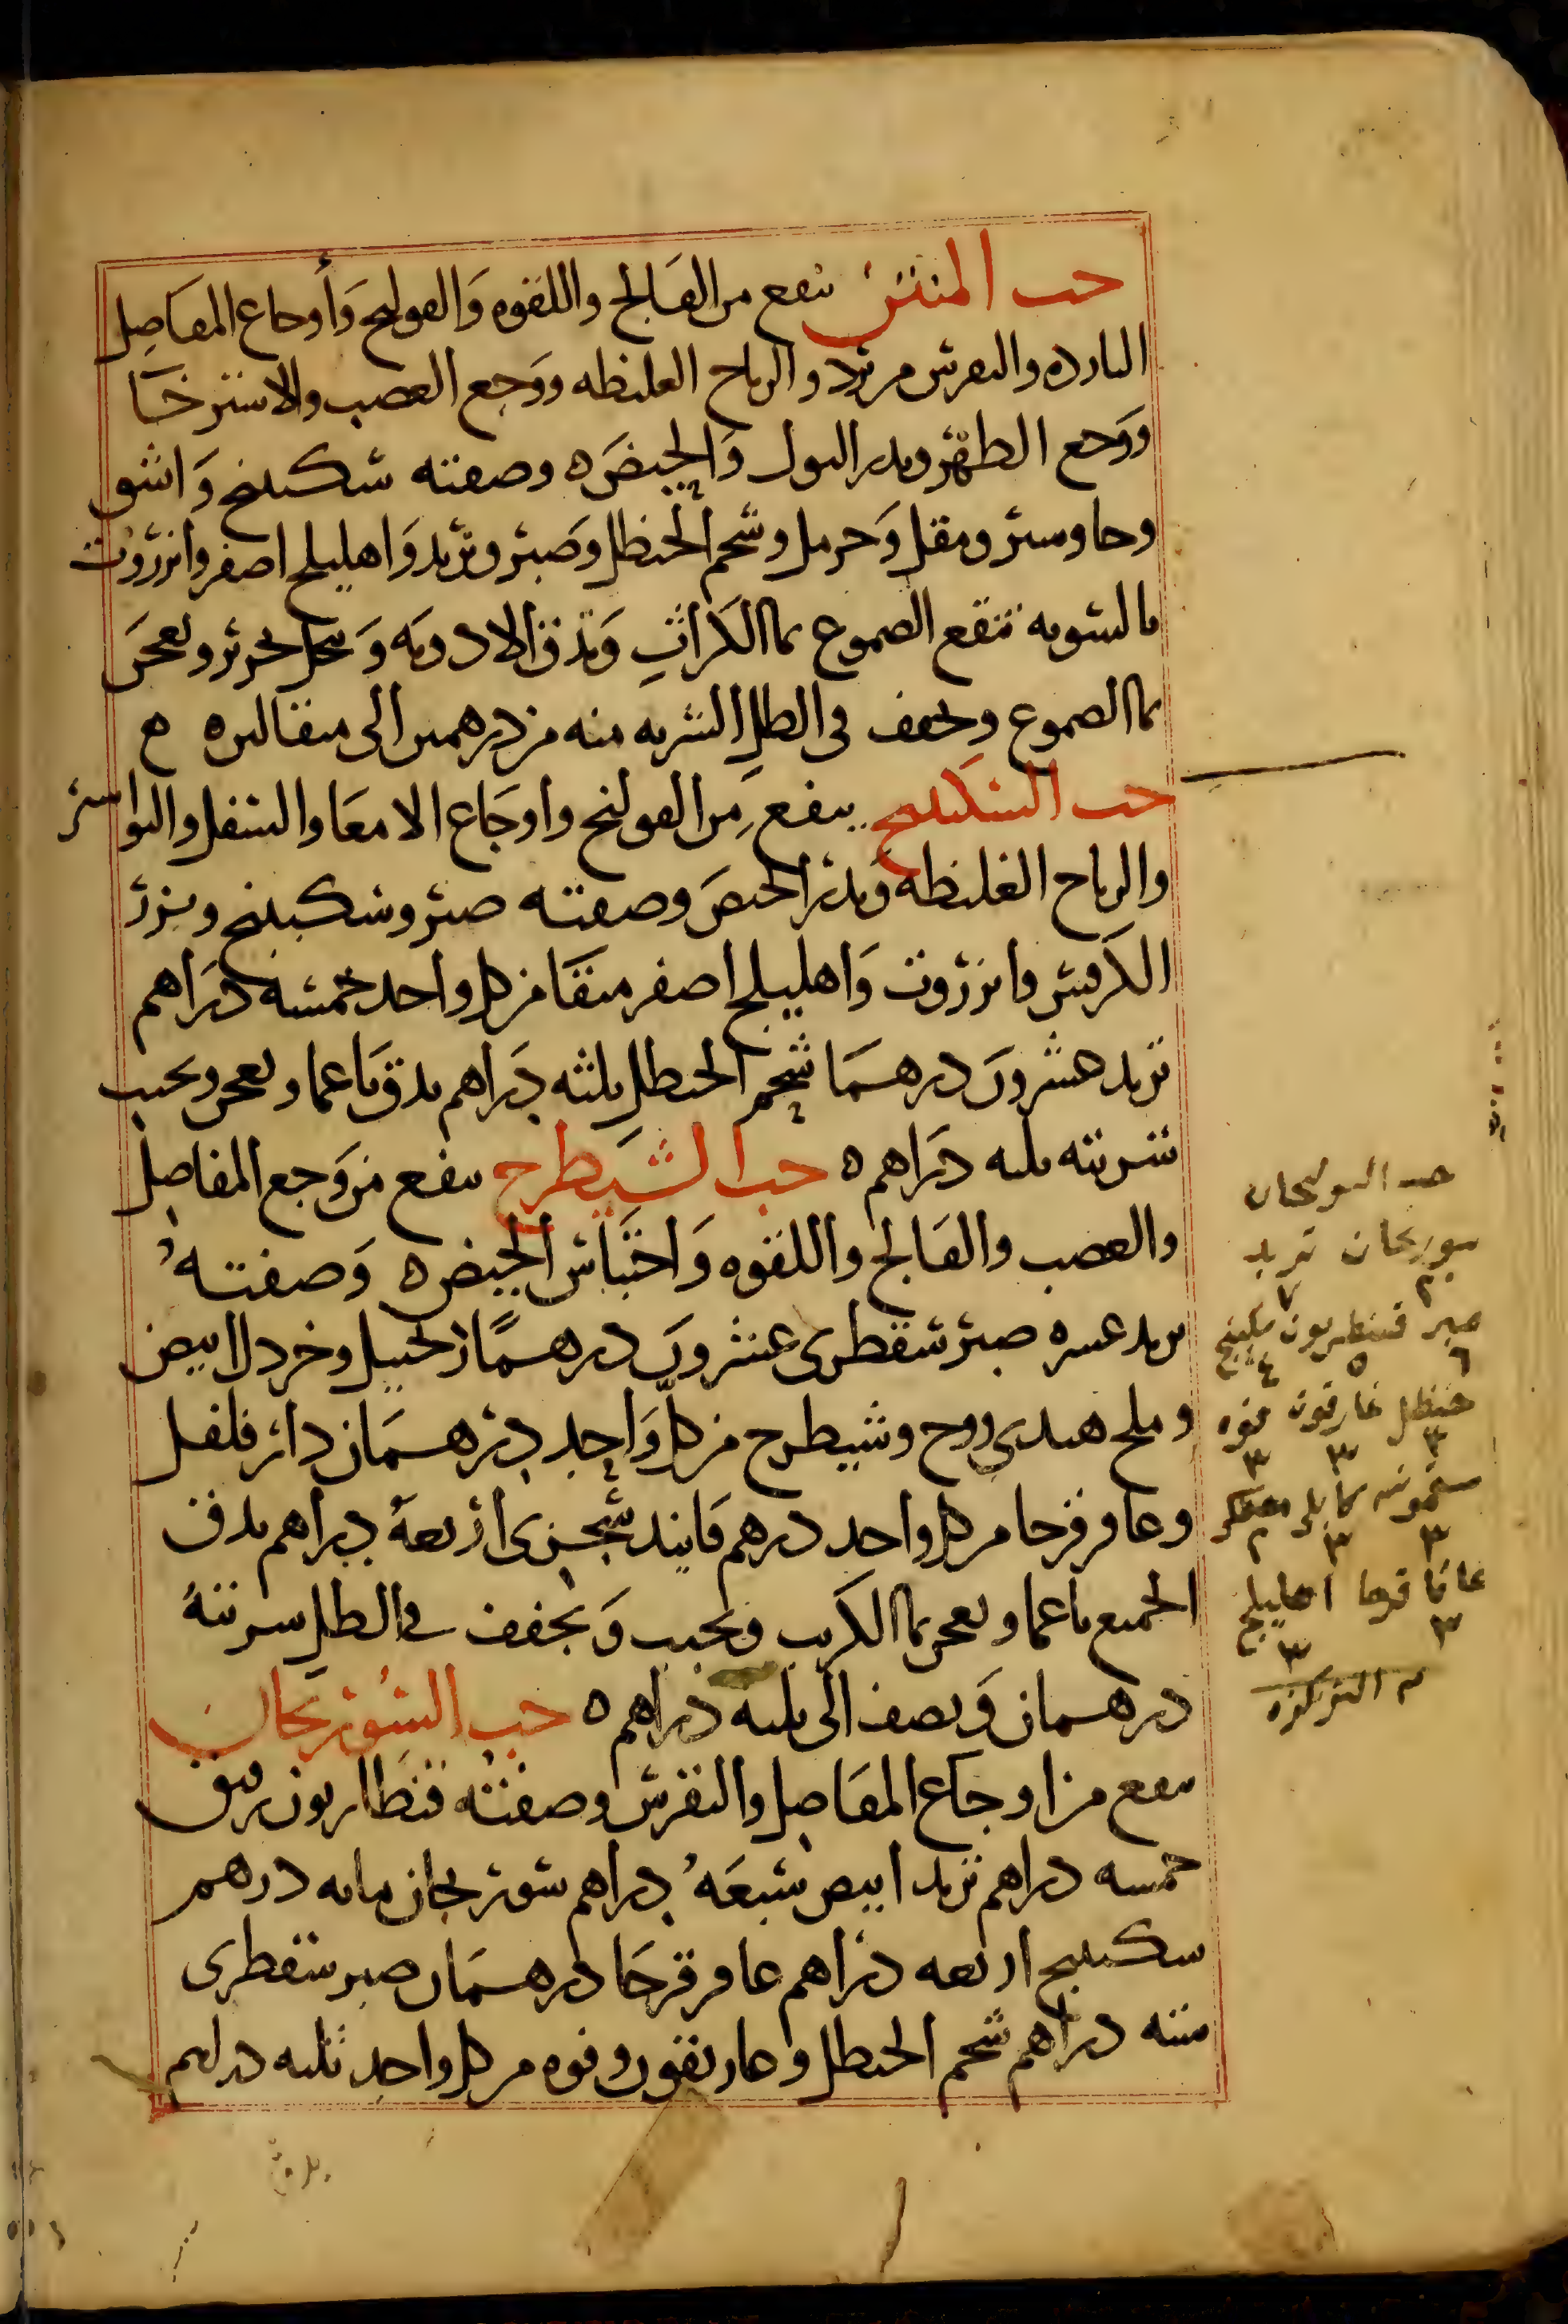 حب المنتن ينفع من الفالج واللقوه والقولنج وأوجاع المفاصل
البارده والنقرس من برد والرياح الغليظه ووجع العصب والاسترخا
ووجع الظهر ويدر البول والحيض وصفته سكبينج واشق
وجاوسير ومقل وحرمل وشحم الحنظل وصبر وتربد واهليلج اصفر وانزروت
بالسويه تنقع الصموغ بما الكراث وتدق الادويه وتنخل بحرير وتعجن
بما الصموغ ويجفف في الظل الشربه منه من درهمين الى مثقالين
حب السكبينج ينفع من القولنج واوجاع الامعا والسفل والبواسير
والرياح الغليظه ويدر الحيض وصفته صبر وسكبينج وبزر
الكرفس وانزروت واهليلج اصفر منقا من كل واحد خمسه دراهم
تربد عشرون درهما شحم الحنظل ثلثه دراهم يدق ناعما ويعجن ويحبب
شربته ثلثه دراهم حب الشيطرج ينفع من وجع المفاصل
والعصب والفالج واللقوه واحتباس الحيض وصفته
تربد عشره صبر سقطرى عشرون درهما زنجبيل وخردل ابيض
وملح هندى ووج وشيطرج من كل واحد درهمان دار فلفل
وعاقرقرحا من كل واحد درهم فانيد سجزى اربعه دراهم يدق
الجميع ناعما ويعجن بما الكرنب ويحبب ويجفف في الظل شربته
درهمان ونصف الى ثلثه دراهم حب السورنجان
ينفع من اوجاع المفاصل والنقرس وصفته قنطاريون رقيق
خمسه دراهم تربد ابيض سبعه دراهم سورنجان مايه درهم
سكبينج اربعه دراهم عاقرقرحا درهمان صبر سقطرى
سته دراهم شحم الحنظل وغاريقون وفوه من كل واحد ثلثه دراهم
حب السورنجان
سورنجان تربد
٢٠ ٧
صبر قنطريون سكبينج
٦ ٥ ٤
حنظل غارقون فوه
٣ ٣ ٣
سقمونيه كابلي
٣ ٣ ٢
عاقا قرحا اهليلج
٣ ٣
يدق